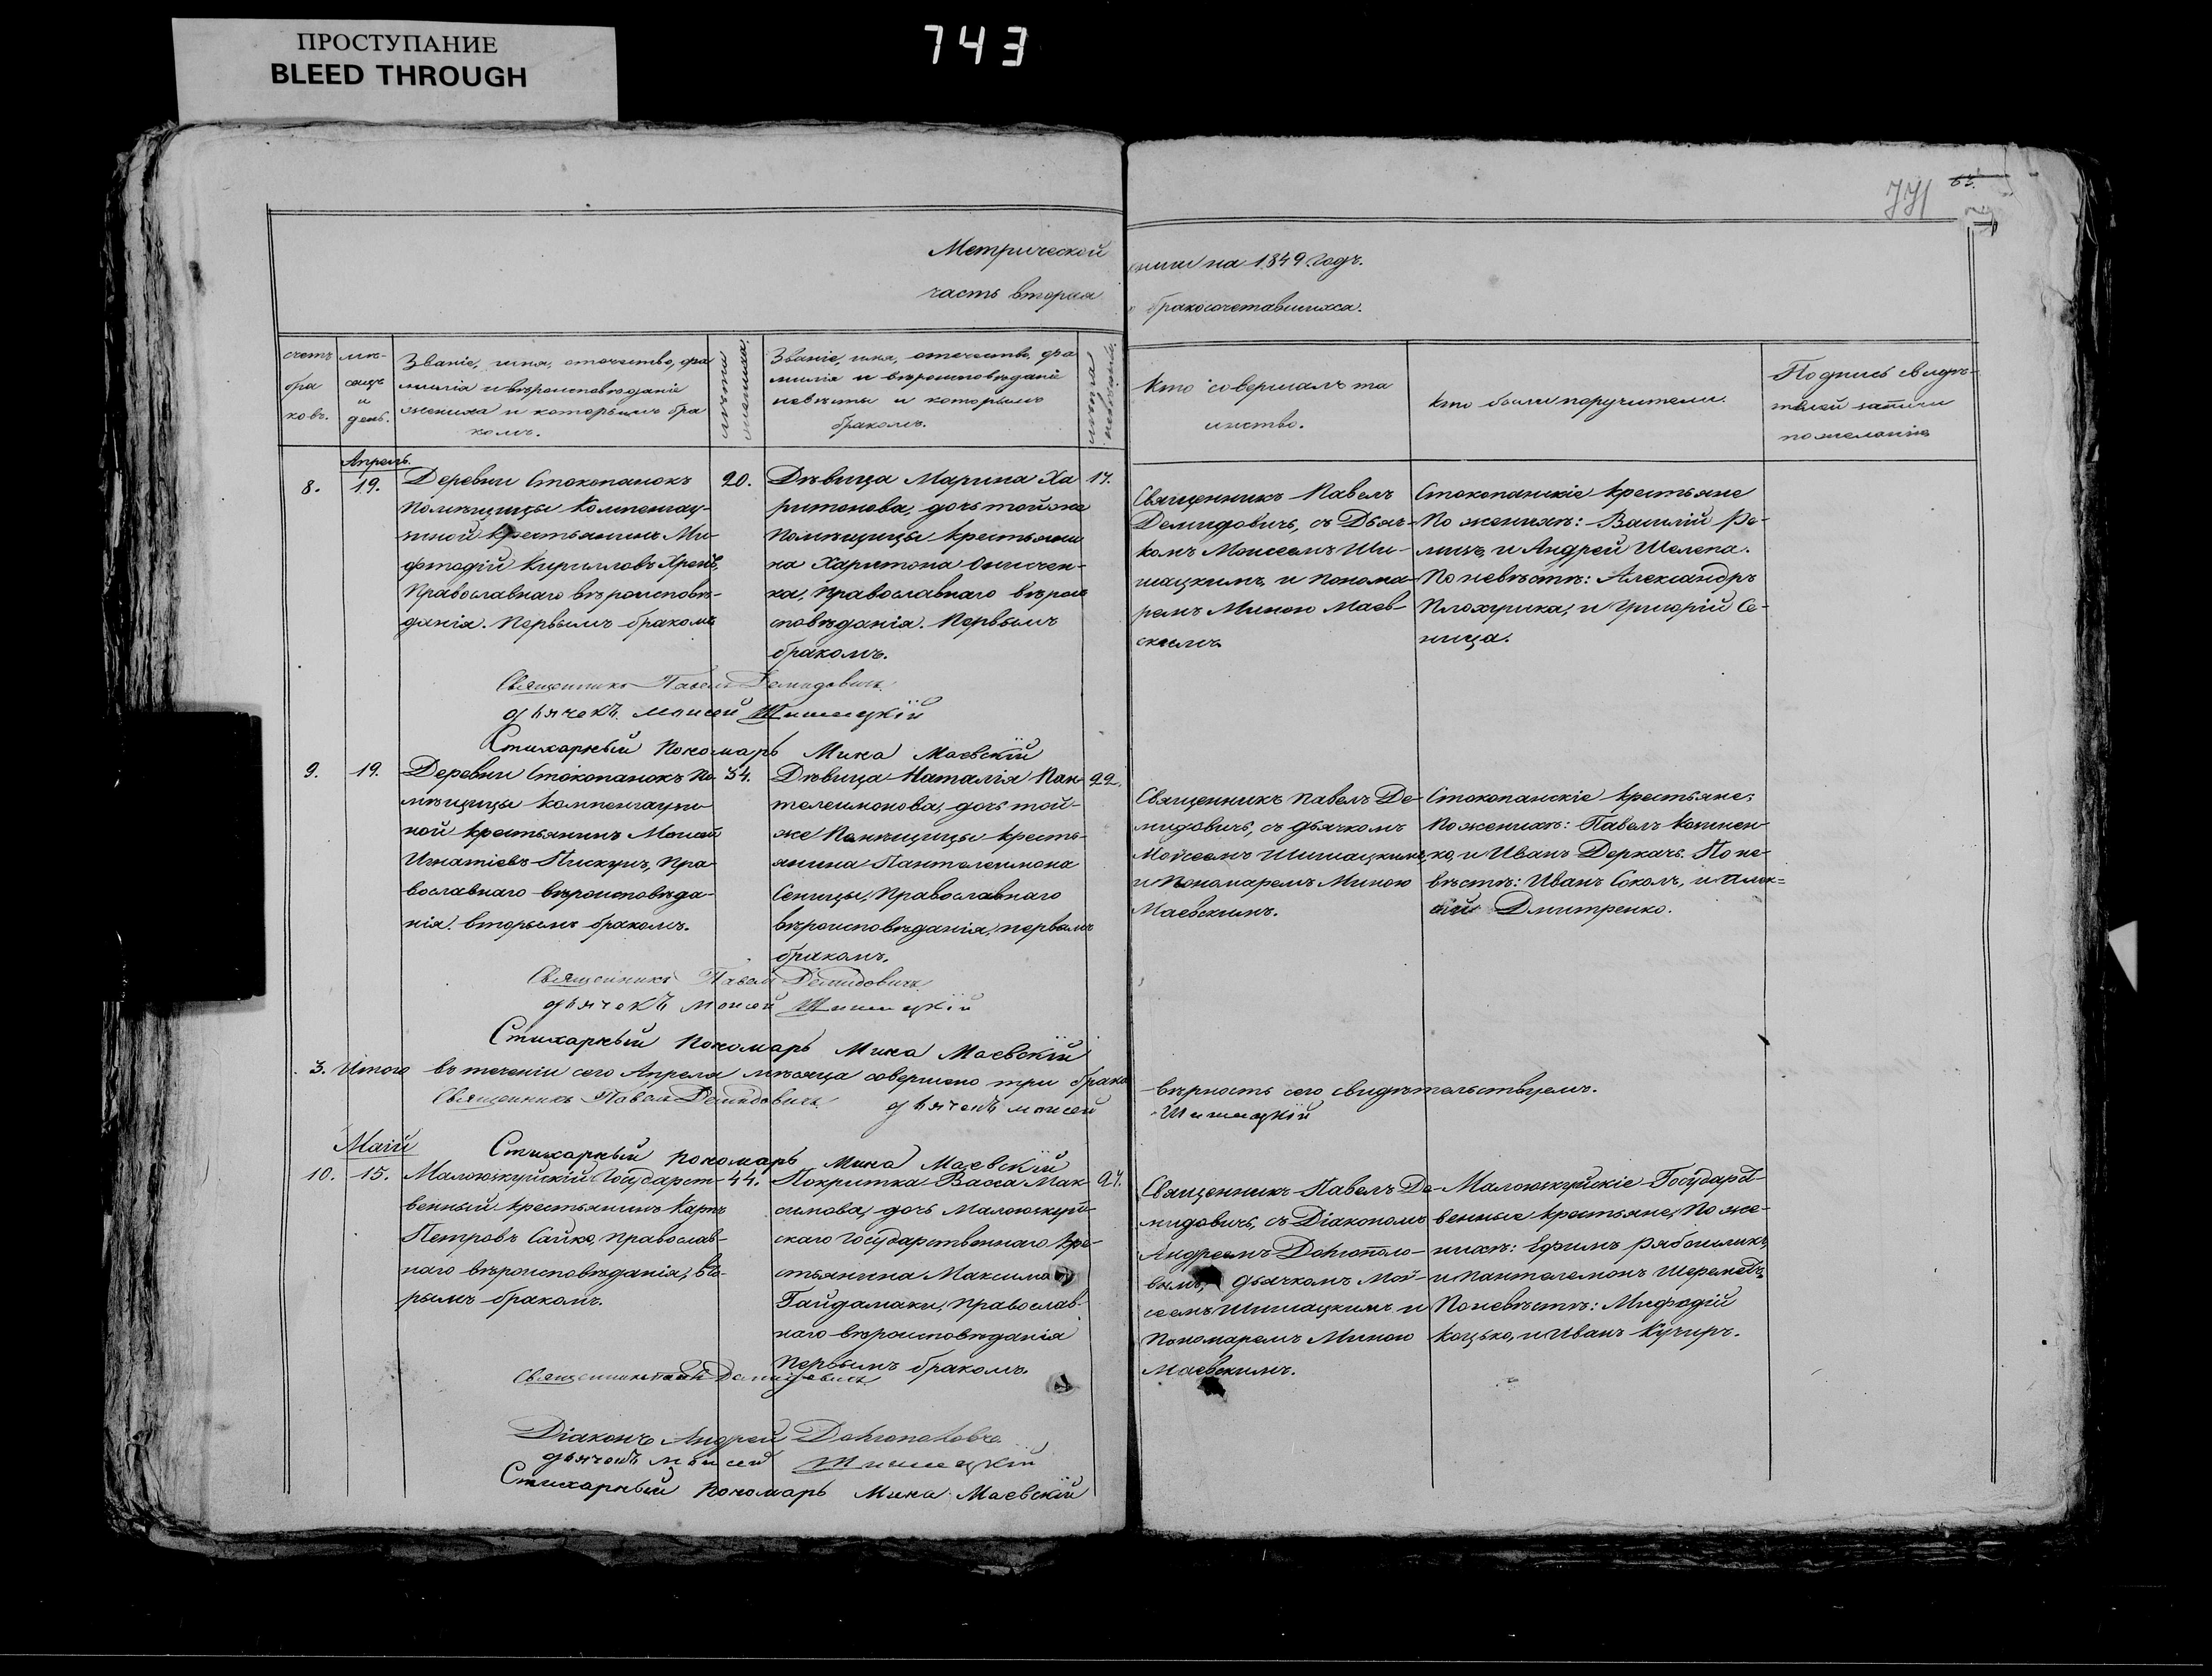 ПРОСТУПАНИЕ
BLEED THROUGH
743
771
63.
Метрической
книги на 1849 годъ.
часть вторая
о бракосочетавшихся.
счетъ
бра
ковъ.
мѣ-
сяцъ
и
день.
Званіе, имя, отечество, фа
милія и вѣроисповѣданіе
жениха и которымъ бра
комъ.
лѣта
жениха.
Званіе, имя, отечество, фа
милія и вѣроисповѣданіе
невѣсты и которымъ
бракомъ.
лѣта
невѣсты.
Кто совершалъ та
инство.
Кто были поручители.
Подпись свидѣ-
телей записи
по желанію
Апрель.
8.
19.
Деревни Стокопанокъ
Помѣщицы
крестьянинъ Ме-
фодій Кирилловъ
Православнаго вѣроисповѣ-
данія. Первымъ бракомъ
20.
Дѣвица Марина Ха
ритонова, дочь той же
Помѣщицы крестьяни
на Харитона
ка, Православнаго вѣрои
сповѣданія. Первымъ
бракомъ.
17.
Священникъ Павелъ
Демидовичъ, съ Дьяч-
комъ Моисеемъ Ши-
шацкимъ, и понома-
ремъ Миною Маев-
скимъ
Стокопанскіе крестьяне
По женихѣ: Василій Ре-
и Андрей Шелепа.
По невѣстѣ: Александръ
и Григорій Се-
ница.
Священникъ Павелъ Демидовичъ.
дьячекъ Моисей Шишацкій
Стихарный Пономарь Мина Маевскій
9.
19.
Деревни Стокопанокъ По
мѣщицы
ной крестьянинъ Моисей
Игнатіевъ Пискунъ, Пра-
вославнаго вѣроисповѣда-
нія. вторымъ бракомъ.
34.
Дѣвица Наталія Пан
телеимонова, дочь той-
же Помѣщицы кресть-
янина Пантелеимона
Сеницы, Православнаго
вѣроисповѣданія, первымъ
бракомъ.
22.
Священникъ Павелъ Де-
мидовичъ, съ дьячкомъ
Мойсеемъ Шишацкимъ,
и Пономаремъ Миною
Маевскимъ.
Стокопанскіе крестьяне;
По женихѣ: Павелъ
ко, и Иванъ Деркачъ. По не-
вѣстѣ: Иванъ Соколъ, и Алек=
сѣй Дмитренко.
Священникъ Павелъ Демидовичъ
дьячекъ Моисей Шишацкій
Стихарный Пономарь Мина Маевскій
3. Итого въ теченіи сего Апреля мѣсяца совершено три брака
вѣрность сего свидѣтельствуемъ.
Священникъ Павелъ Демидовичъ дьячекъ моисей
Шишацкій
Стихарный пономарь Мина Маевскій
Маій
10.
15.
Государст-
венный крестьянинъ Карпъ
Петровъ Сайко, православ-
наго вѣроисповѣданія, вто-
рымъ бракомъ.
44.
Покритка Васса Мак
симова, дочь
скаго Государственнаго кре-
стьянина Максима
Гайдамаки, Православ-
наго вѣроисповѣданія
Первымъ бракомъ.
Священникъ Павелъ Де-
мидовичъ, съ Діакономъ
Андреемъ Долгополо-
вымъ, дьячкомъ Мой-
сеемъ Шишацкимъ и
Пономаремъ Миною
Маевскимъ.
Государст
венные крестьяне, По же-
нихѣ: Ефимъ
и Пантелемонъ Шереметъ,
По невѣстѣ: Мефодій
Коцько, и Иванъ Кучиръ.
Священникъ Павелъ Демидовичъ
Діаконъ Андрей Долгополовъ
дьячекъ моисей Шишацкій
Стихарный пономарь Мина Маевскій